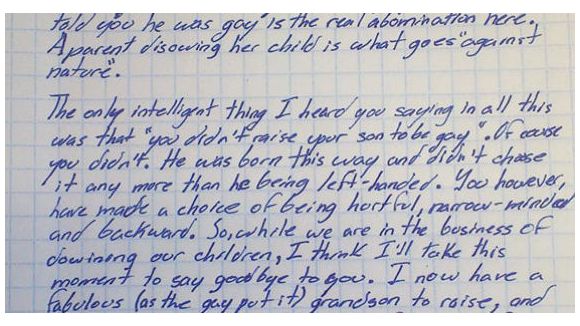 told you he was gay" is the real abomination here.
A parent disowing her child is what goes "against
nature".
The only intelligent thing I heard you saying in all this
was that "you didn't raise your son to be gay". Of cause
you didn't. He was born this way and didn't choose
it any more than he being left-handed. You however,
have made a choice of being hurtful, narrow-minded
and backward. So, while we are in the business of
disowining our children, I think I'll take this
moment to say goodbye to you. I now have a
fabulous (as the gay put it) grandson to raise, and